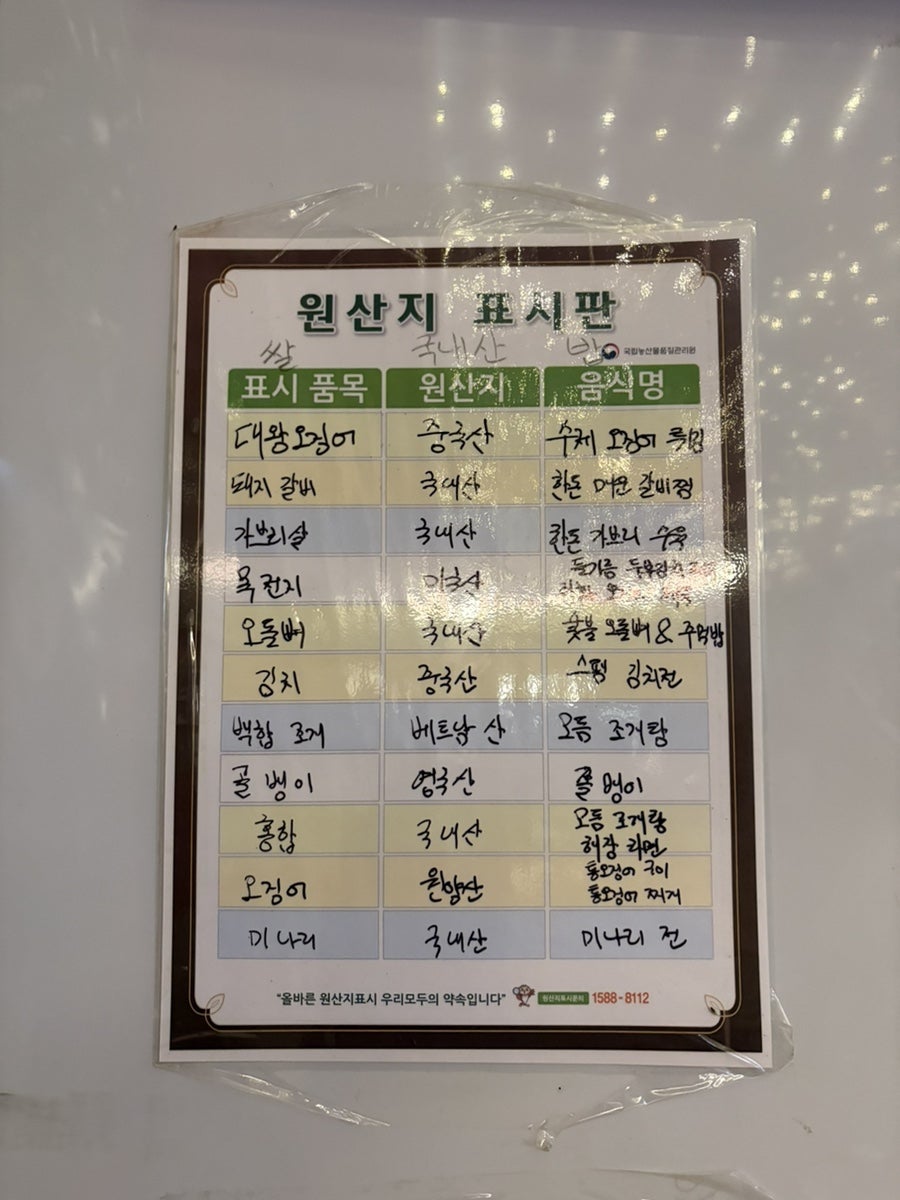 원산지 표시판
쌀 국내산 밥
국립농산물품질관리원
표시 품목 원산지 음식명
대왕오징어 중국산 수제 오징어 튀김
돼지 갈비 국내산 한돈 매운 갈비찜
가브리살 국내산 한돈 가브리 수육
목전지
들기름 두부김치
오돌뼈 국내산 숯불 오돌뼈 & 주먹밥
김치 중국산 스팸 김치전
백합 조개 베트남 산 모듬 조개탕
골 뱅이 영국산 골 뱅이
홍합 국내산 모듬 조개탕
해장 라면
오징어 원양산 통오징어 구이
통오징어 찌개
미나리 국내산 미나리 전
"올바른 원산지표시 우리모두의 약속입니다" 원산지표시문의 1588-8112